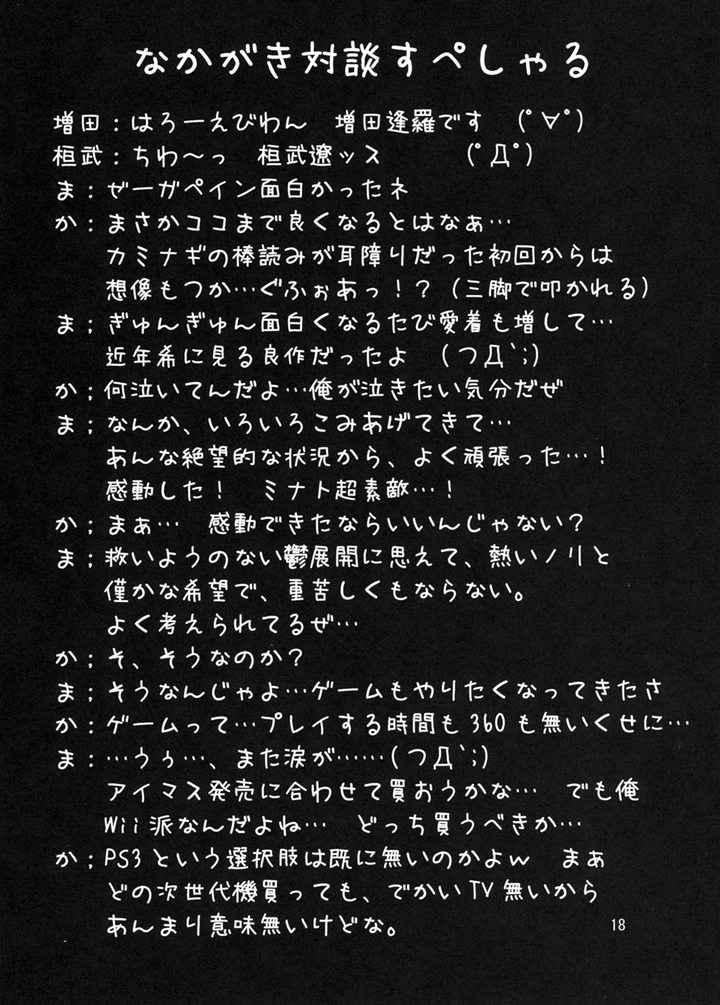 なかがき対談すぺしゃる
増田：はろーえびわん　増田逢羅です　(ﾟ∀ﾟ)
桓武：ちわ～っ　桓武遼ッス　　　(ﾟДﾟ)
ま：ゼーガペイン面白かったネ
か：まさかココまで良くなるとはなぁ…
カミナギの棒読みが耳障りだった初回からは
想像もつか…ぐふぉあっ！？（三脚で叩かれる）
ま；ぎゅんぎゅん面白くなるたび愛着も増して…
近年希に見る良作だったよ　(つД`;)
か；何泣いてんだよ…俺が泣きたい気分だぜ
ま；なんか、いろいろこみあげてきて…
あんな絶望的な状況から、よく頑張った…！
感動した！　ミナト超素敵…！
か；まぁ…　感動できたならいいんじゃない？
ま；救いようのない鬱展開に思えて、熱いノリと
僅かな希望で、重苦しくもならない。
よく考えられてるぜ…
か；そ、そうなのか？
ま；そうなんじゃよ…ゲームもやりたくなってきたさ
か：ゲームって…プレイする時間も360も無いくせに…
ま：…うぅ…、また涙が……(つД`;)
アイマス発売に合わせて買おうかな…　でも俺
Wii派なんだよね…　どっち買うべきか…
か；PS3という選択肢は既に無いのかよｗ　まぁ
どの次世代機買っても、でかいTV無いから
あんまり意味無いけどな。
18